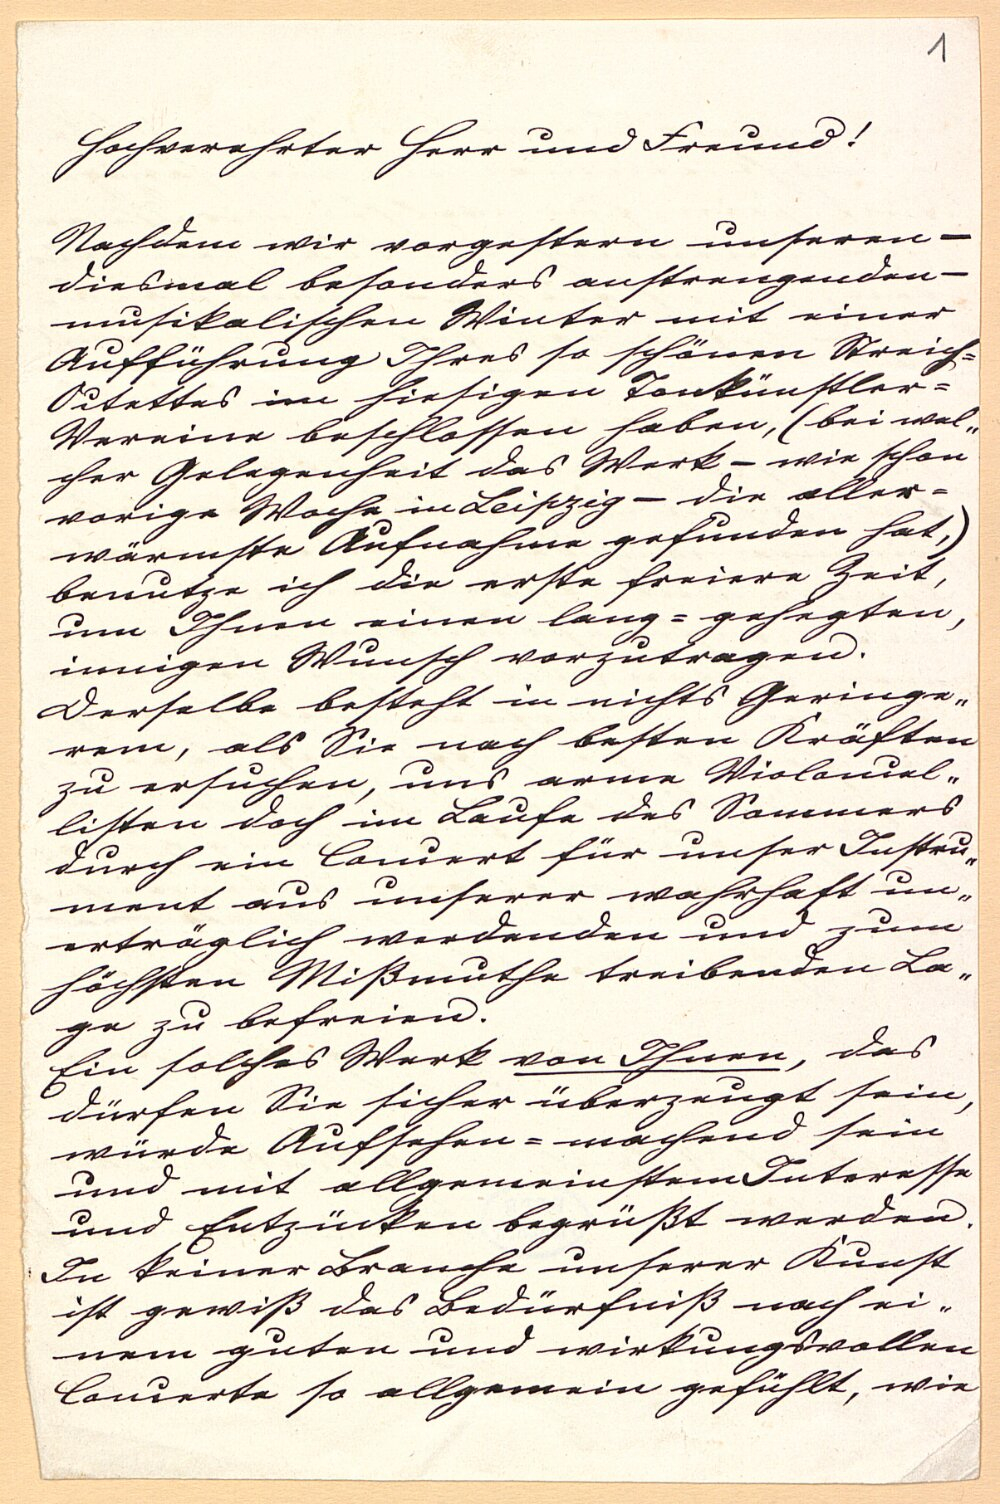 1
Hochverehrter Herr und Freund!
Nachdem wir vorgestern unseren –
diesmal besonders anstrengenden –
musikalischen Winter mit einer
Aufführung Ihres so schönen Streich=
Octettes im hiesigen Tonkünstler=
Vereine beschlossen haben, (bei wel„
cher Gelegenheit das Werk – wie schon
vorige Woche in Leipzig – die aller=
wärmste Aufnahme gefunden hat,)
benutze ich die erste freiere Zeit,
um Ihnen einen lang=gehegten,
innigen Wunsch vorzutragen.
Derselbe besteht in nichts Geringe„
rem, als Sie nach besten Kräften
zu ersuchen, uns arme Violoncel„
listen doch im Laufe des Sommers
durch ein Concert für unser Instru„
ment aus unserer wahrhaft un„
erträglich werdenden und zum
höchsten Mißmuthe treibenden La„
ge zu befreien.
Ein solches Werk von Ihnen, das
dürfen Sie sicher überzeugt sein,
würde Aufsehen=machend sein
und mit allgemeinstem Interesse
und Entzücken begrüßt werden.
In keiner Branche unserer Kunst
ist gewiß das Bedürfniß nach ei„
nem guten und wirkungsvollen
Concerte so allgemein gefühlt, wie